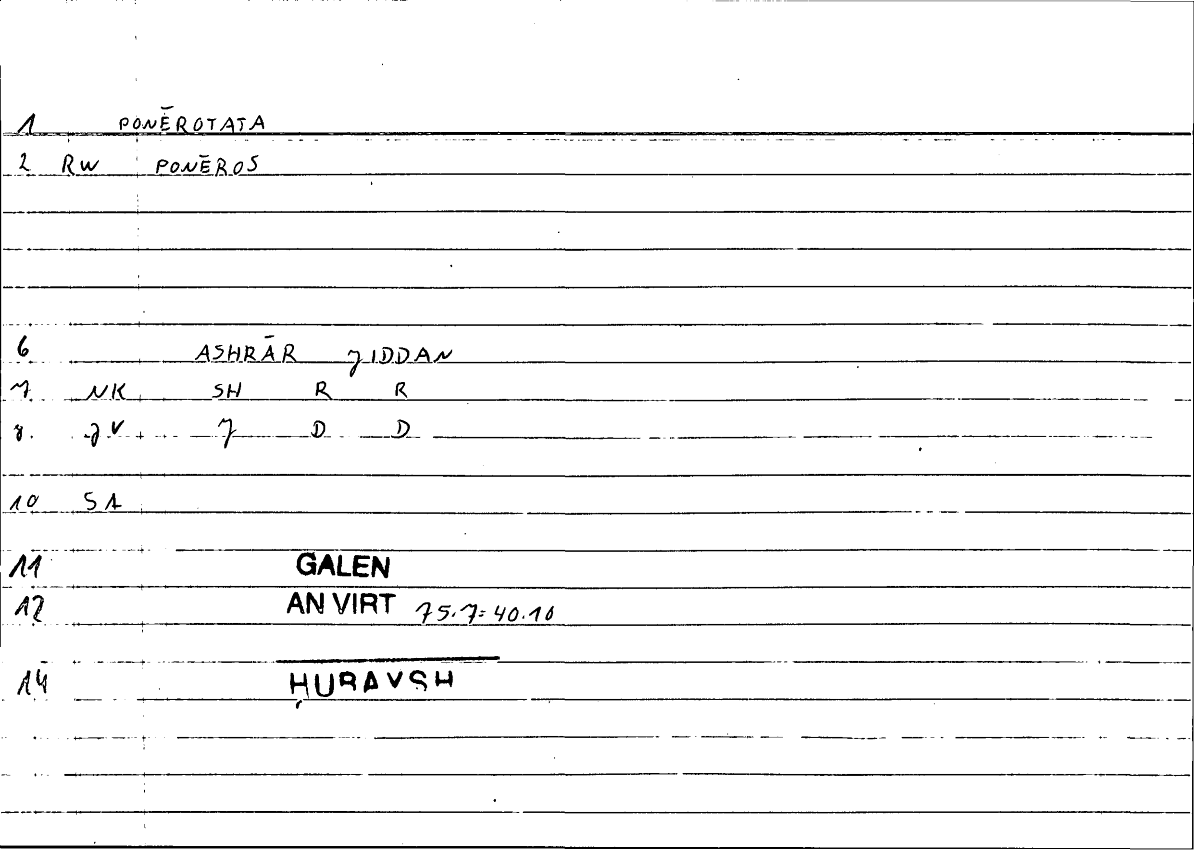 1 PONĒROTATA
2 RW PONĒROS
6 ASHRĀR JIDDAN
7 NK SH R R
8. JV J D D
10 SA
11 GALEN
12 AN VIRT 75.7=40.10
14 ḤURAYSH